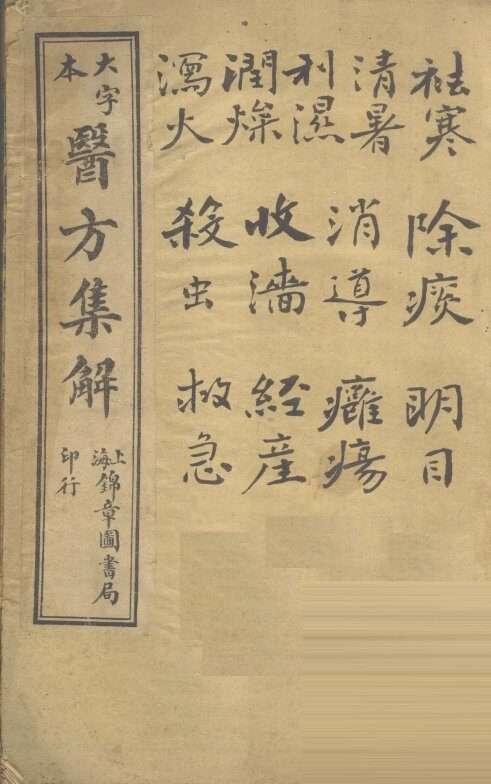 祛寒
清暑
利濕
潤燥
瀉火
除痰
消導
收濇
殺虫
明目
癰瘍
經產
救急
大字本
醫方集解
上海錦章圖書局
印行